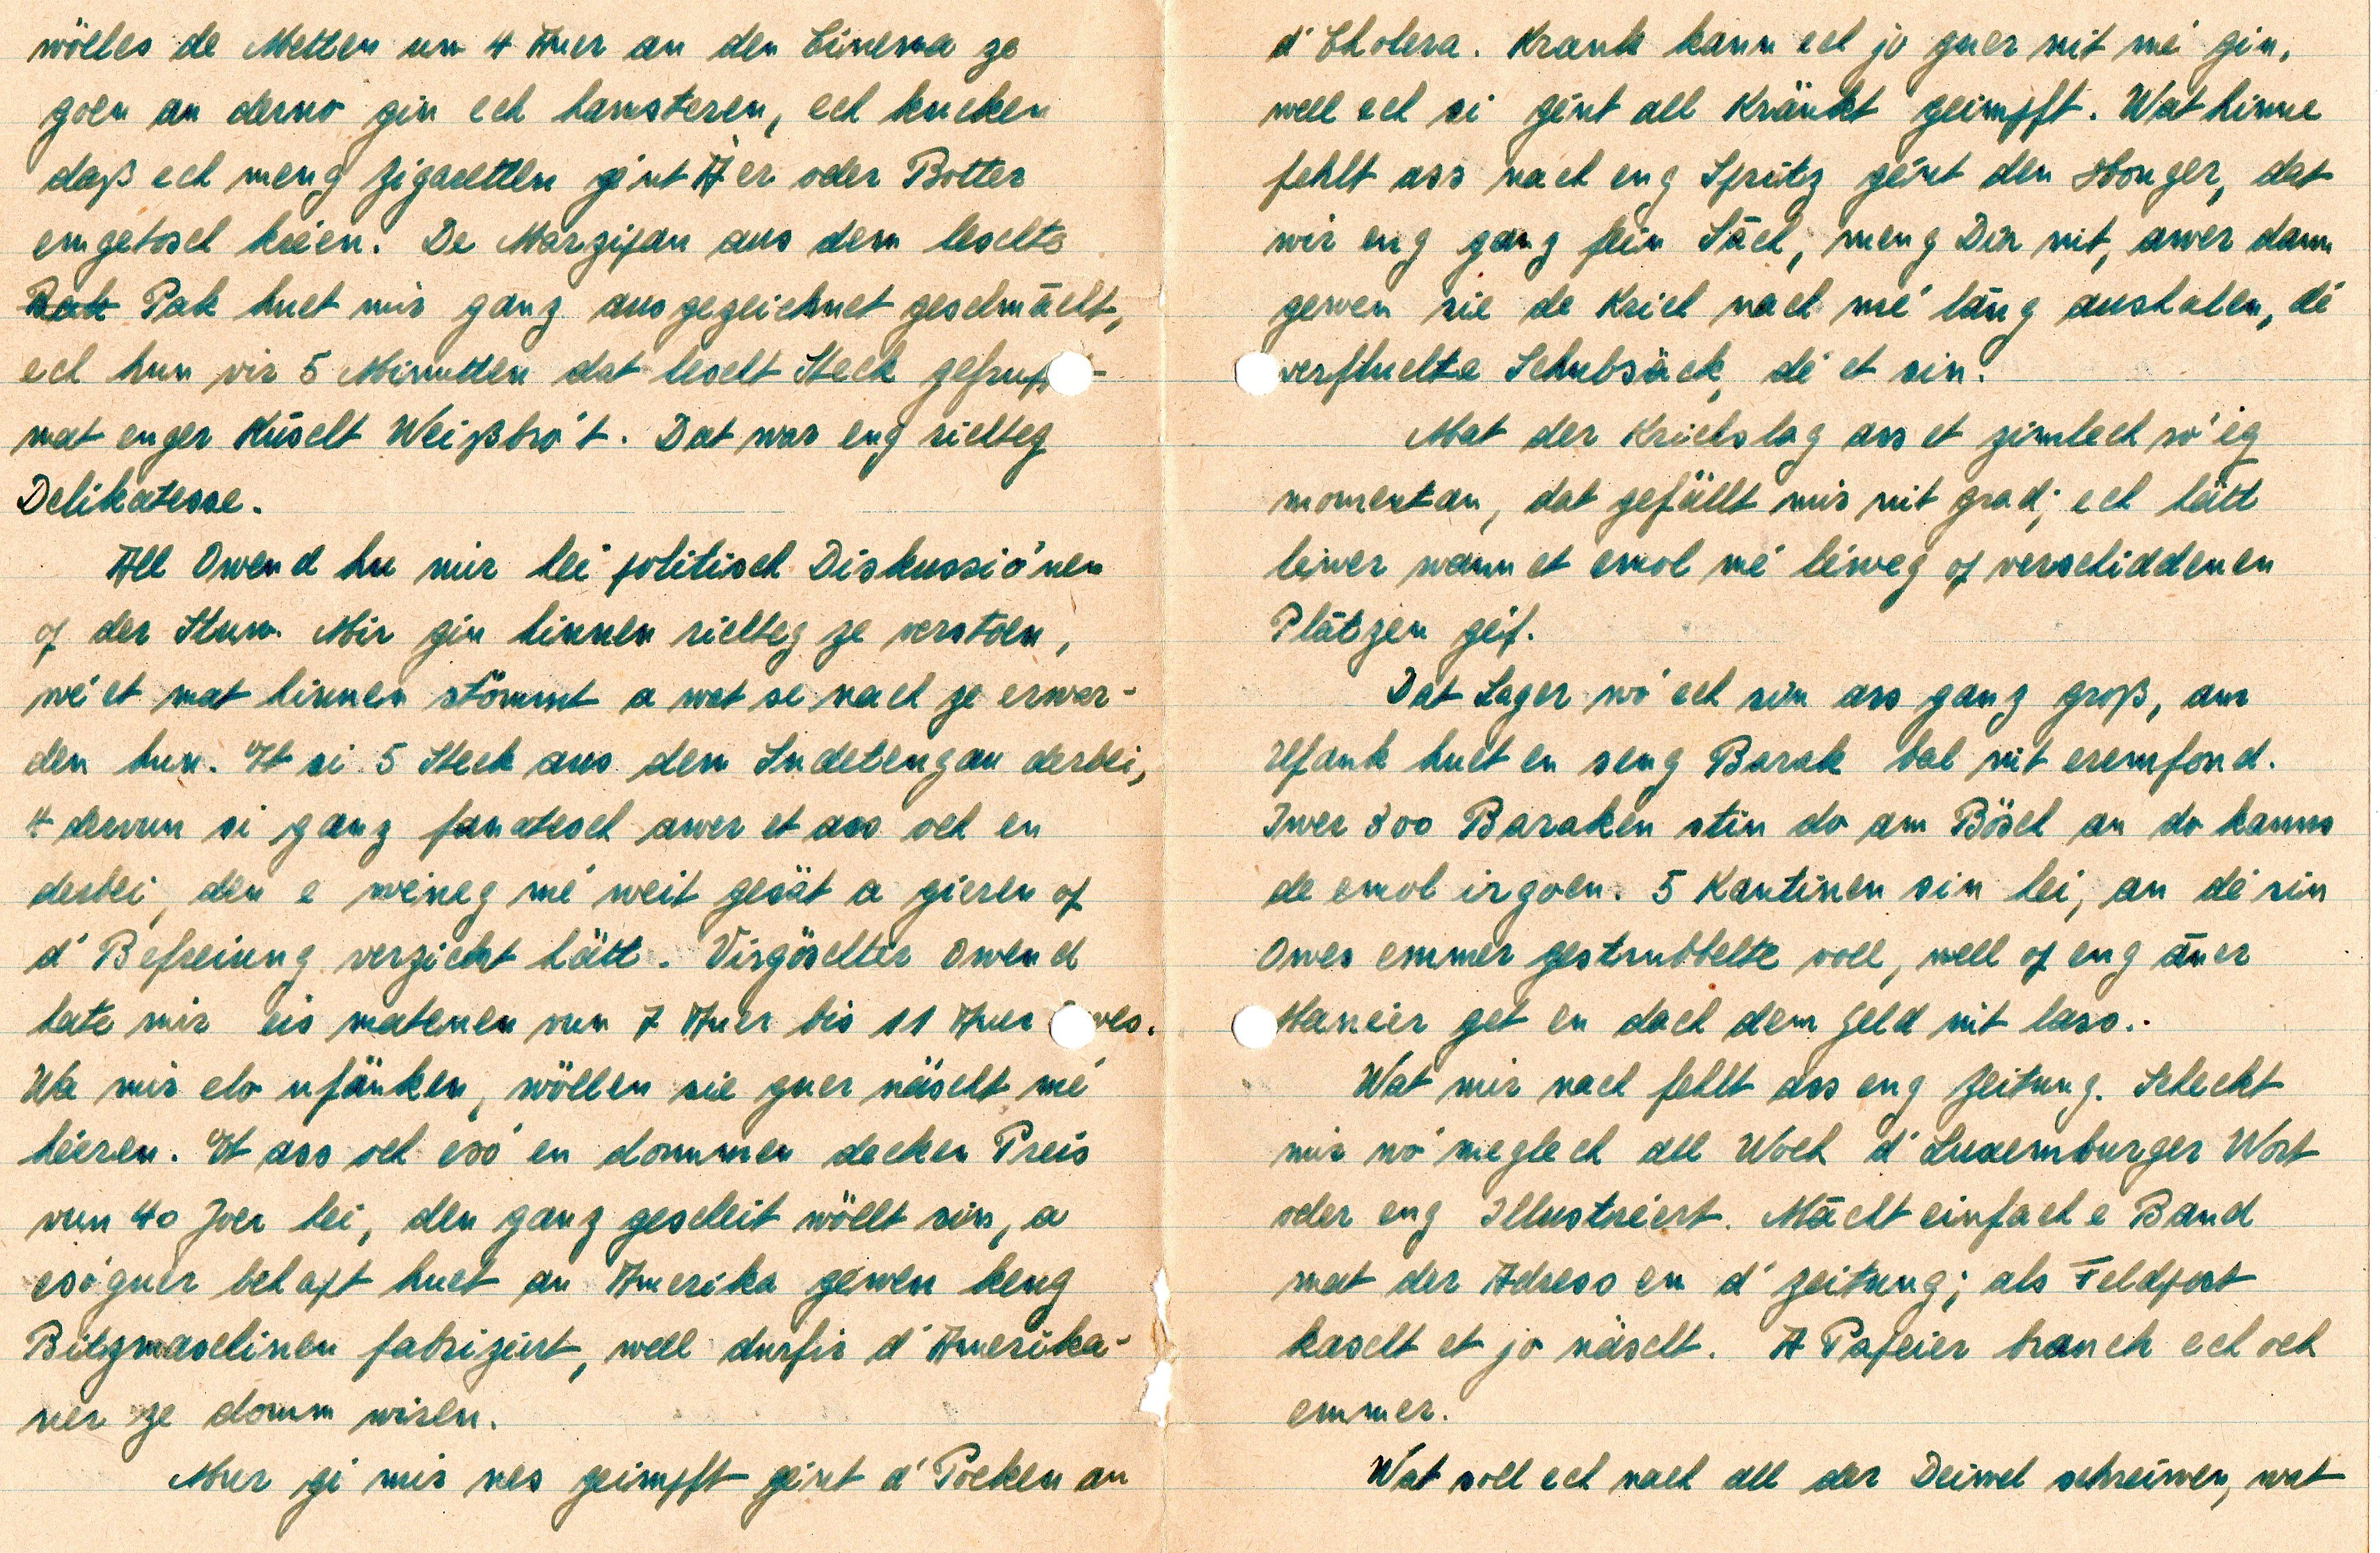 wölles de Metten um 4 Auer an den Cinema ze
goen an derno gin ech hamsteren, ech kucken
daß ech meng Zigaretten gént Äer oder Botter
emgetosch kréen. De Marzipan aus dem leschte
Pak Pak huet mir ganz ausgezeichnet geschmācht,
ech hun vir 5 Minutten dat lescht Steck gefrupst
mat enger Kúscht Weißbró't. Dat war eng richteg
Delikatesse.
All Owend hu mir hei politisch Diskussió'nen
of der Stuw. Mir gin hinnen richteg ze verstoen,
wé et mat hinnen stömmt a wat se nach ze erwar-
den hun. Et si 5 Steck aus dem Sudetengau derbei,
4 dervun si ganz fanatesch awer et ass och en
derbei, den e weineg mé weit gesät a gieren of
d'Befreiung verzicht hätt. Virgöschter Owend
hate mir eis matenen vun 7 Auer bis 11 Auer Owes.
Wa mir elo ufänken, wöllen sie guer näscht mé
héieren. Et ass och esó en dommen decken Preis
vun 40 Joer hei, den ganz gescheit wöllt sin, a
esóguer behapt huet an Amerika géwen keng
Bitzmaschinen fabrizéiert, well durfir d'Amerika-
ner ze domm wiren.
Muer gi mir nes geimpft gént d'Pocken an
d'Cholera. Krank kann ech jo guer nit mé gin,
well ech si gént all Kränkt geimpft. Wat hinne
fehlt ass nach eng Sprütz gént den Honger, dat
wir eng ganz fein Sāch, meng Dir nit, awer dann
gewen sie de Krich nach mé lāng aushalen, dé
verfluchte Schubsäck, dé et sin.
Mat der Krichslag ass et zimlech ró'eg
momentan, dat gefällt mir nit grad; ech hätt
léiwer wann et emol mé héiweg of verschiddenen
Plätzen géif.
Dat Lager wó ech sin ass ganz groß, am
Ufank huet en seng Barak bal nit eremfond.
Iwer 300 Baraken stin do am Bösch an do kanns
de emol irgoen. 5 Kantinen sin hei, an dé sin
Owes emmer gestrubbelte voll, well of eng āner
Manéier get en dach dem Geld nit lass.
Wat mir nach fehlt ass eng Zeitung. Scheckt
mir wó meglech all Woch d'Luxemburger Wort
oder eng Illustréiert. Mācht einfach e Band
mat der Adress em d'Zeitung; als Feldpost
kascht et jo näscht. A Papeier brauch ech och
emmer.
Wat soll ech nach all der Deiwel schreiwen, wat